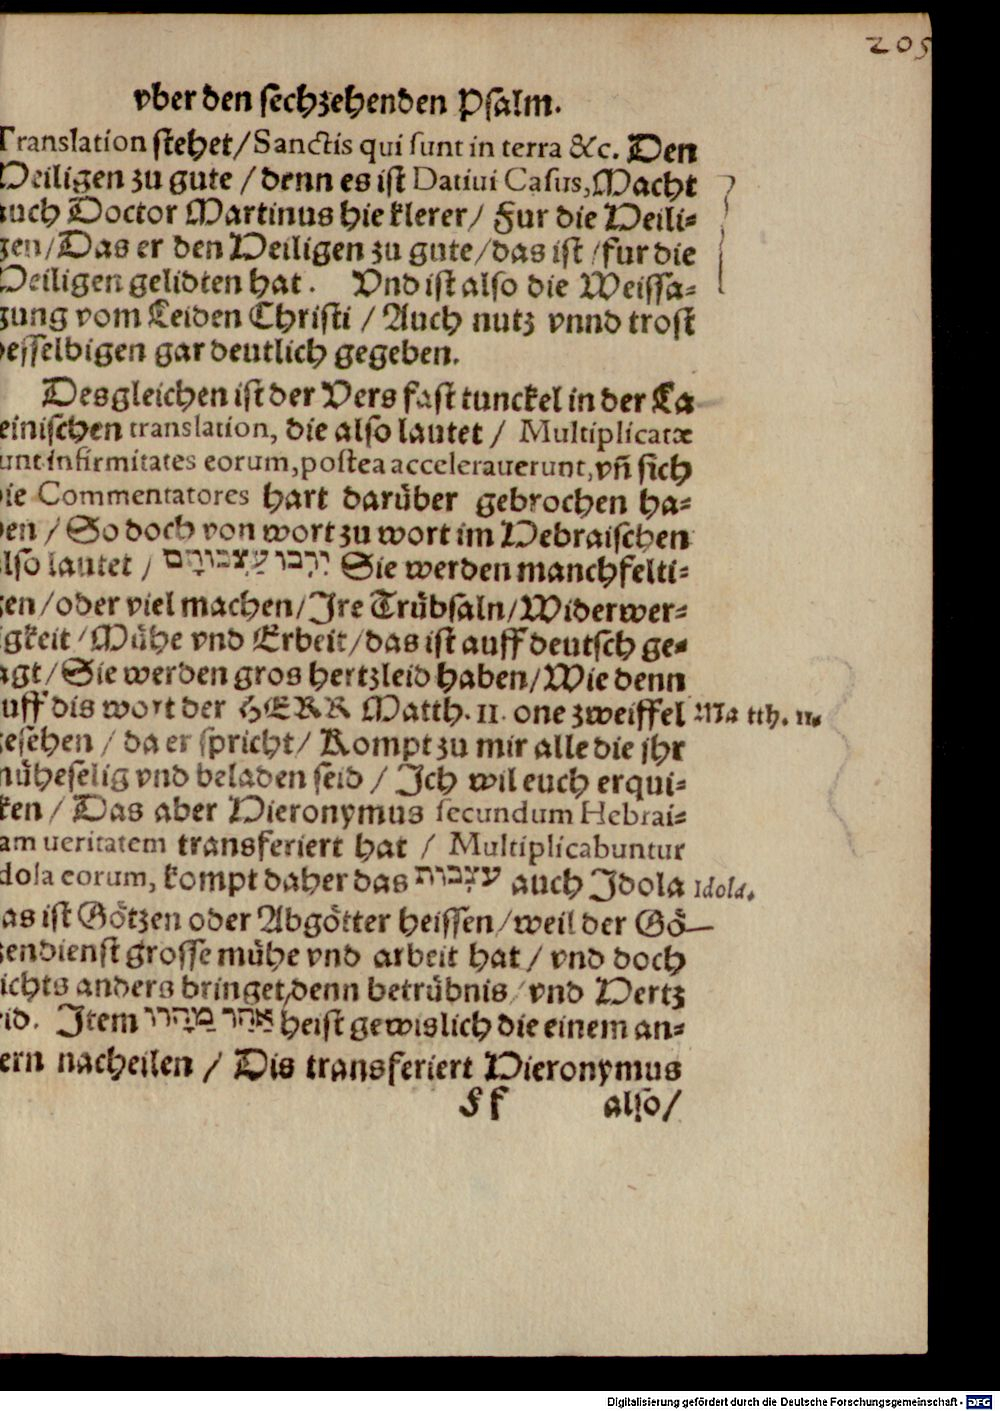 205
vber den sechzehenden Psalm.
Translation stehet/Sanctis qui sunt in terra &c. Den
Heiligen zu gute / denn es ist Datiui Casus, Macht
auch Doctor Martinus hie klerer/ Fur die Heili-
gen/Das er den Heiligen zu gute/das ist/fur die
Heiligen gelidten hat. Vnd ist also die Weissa-
gung vom Leiden Christi / Auch nutz vnnd trost
desselbigen gar deutlich gegeben.
Desgleichen ist der Vers fast tunckel in der La
einischen translation, die also lautet / Multiplicatæ
unt infirmitates eorum, postea accelerauerunt, vñ sich
die Commentatores hart darüber gebrochen ha-
ben / So doch von wort zu wort im Hebraischen
also lautet / יִרְבּוּ עַצְּבוֹתָם Sie werden manchfelti-
gen/oder viel machen/Jre Trübsaln/Widerwer-
igkeit/Mühe vnd Erbeit/das ist auff deutsch ge-
agt/Sie werden gros hertzleid haben/Wie denn
uff dis wort der HERR Matth. 11. one zweiffel Matth. 11.
gesehen / da er spricht/ Kompt zu mir alle die jhr
müheselig vnd beladen seid / Jch wil euch erqui-
ken / Das aber Hieronymus secundum Hebrai-
am ueritatem transferiert hat / Multiplicabuntur
dola eorum, kompt daher das עצבות auch Jdola Idola.
as ist Götzen oder Abgötter heissen/weil der Gö
zendienst grosse mühe vnd arbeit hat/ vnd doch
ichts anders bringet/denn betrübnis/vnd Hertz
eid. Jtem אַחֵר מָהָרוּ heist gewislich die einem an-
ern nacheilen / Dis transferiert Hieronymus
Ff also/
Digitalisierung gefördert durch die Deutsche Forschungsgemeinschaft - DFG